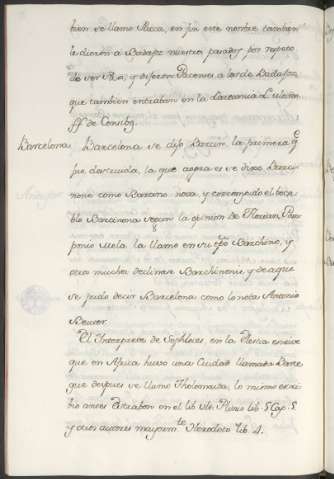 bien se llamo Pacca, en fin este nombre tambien
le dieron a Badajoz nuestros
de ser Paz, y dijeron Pacenses a los de Badajoz,
que tambien entraban en la
ff de Censibg.
Barcelona Barcelona se dijo Barcin. la primera q
fue destruida, la que aogra es se dixo Barci-
nona como Barcino nova, y corrompido el voca-
blo Barcinona segun la opinion de Florian, Pom-
ponio Mela la llamo en su Barchino, y
otros muchos declinase Barchinonis, y de aqui
se pudo decir Barcelona como lo nota Antonio
Beuter.
El Interprete de Sophocles en la Electra escrive
que en Africa huvo una Ciudad llamada Barce
que despues se llamo Tholomaida, lo mismo escri-
bio antes Estrabon en el lib. Plinio lib. 5 Cap. 5
y otros autores mayormte Herodoto lib. 4.